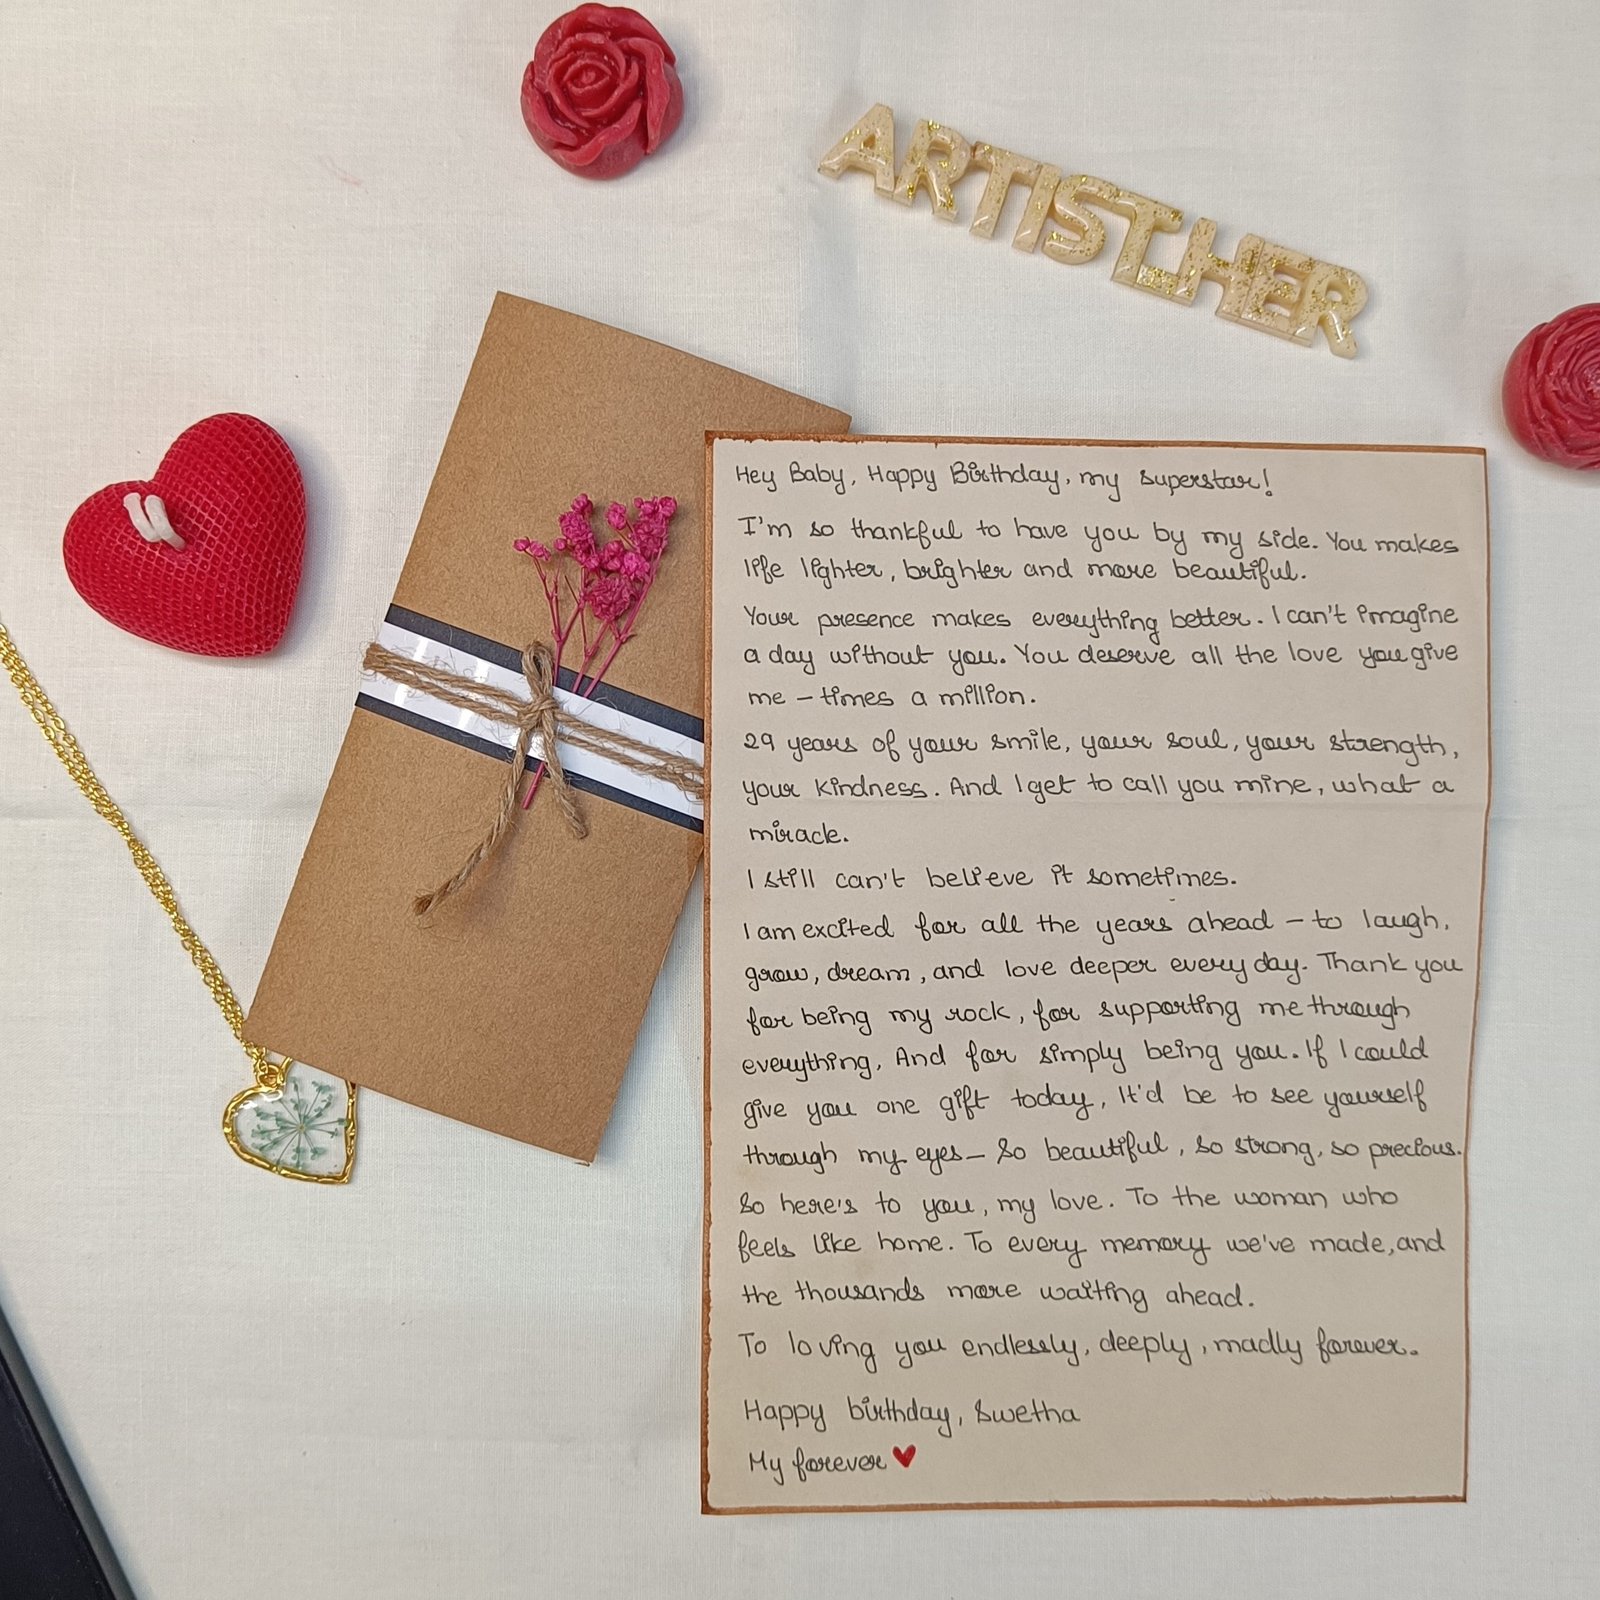 ARTIST.HER
Hey Baby, Happy Birthday, my superstar!
I'm so thankful to have you by my side. You makes
life lighter, brighter and more beautiful.
Your presence makes everything better. I can't imagine
a day without you. You deserve all the love you give
me – times a million.
29 years of your smile, your soul, your strength,
your kindness. And I get to call you mine, what a
miracle.
I still can't believe it sometimes.
I am excited for all the years ahead – to laugh,
grow, dream, and love deeper every day. Thank you
for being my rock, for supporting me through
everything, And for simply being you. If I could
give you one gift today, It'd be to see yourself
through my eyes – So beautiful, so strong, so precious.
So here's to you, my love. To the woman who
feels like home. To every memory we've made, and
the thousands more waiting ahead.
To loving you endlessly, deeply, madly forever.
Happy birthday, Swetha
My forever ♥